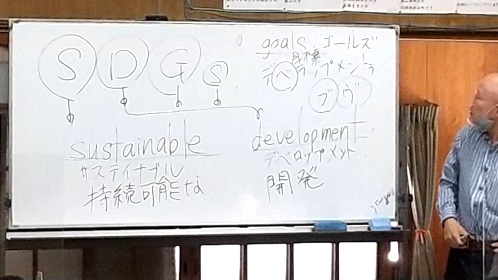 SDGs
goals ゴールズ
目標
デベロップメント
ブ ヴ
sustainable
サステイナブル
持続可能な
development
デベロップメント
開発